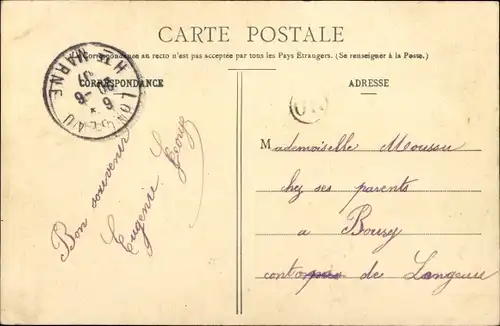 CARTE POSTALE
Correspondance au recto n'est pas acceptée par tous les Pays Étrangers. (Se renseigner à la Poste.)
CORRESPONDANCE
ADRESSE
LONGEAU
HTE MARNE
Bon souvenir
Eugenie
Mademoiselle Moussu
chez ses parents
a Bourg
de